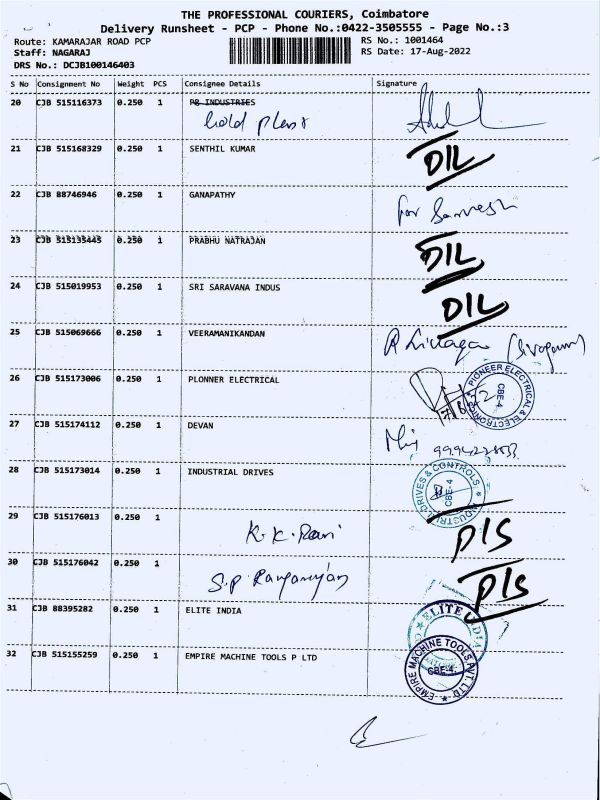 THE PROFESSIONAL COURIERS, Coimbatore
Delivery Runsheet - PCP - Phone No.:0422-3505555 - Page No.:3
Route: KAMARAJAR ROAD PCP RS No.: 1001464
Staff: NAGARAJ RS Date: 17-Aug-2022
DRS No.: DCJB100146403
S No Consignment No Weight PCS Consignee Details Signature
20 CJB 515116373 0.250 1 PB INDUSTRIES
Gold Plast
21 CJB 515168329 0.250 1 SENTHIL KUMAR D/L
22 CJB 88746946 0.250 1 GANAPATHY For Sarvesh
23 CJB 515135445 0.250 1 PRABHU NATRAJAN D/L
24 CJB 515019953 0.250 1 SRI SARAVANA INDUS D/L
25 CJB 515069666 0.250 1 VEERAMANIKANDAN
26 CJB 515173006 0.250 1 PLONNER ELECTRICAL PIONEER ELECTRICAL & ELECTRONICS CBE-4
27 CJB 515174112 0.250 1 DEVAN
28 CJB 515173014 0.250 1 INDUSTRIAL DRIVES INDUSTRIAL DRIVES & CONTROLS CBE-4
29 CJB 515176013 0.250 1 K.K. Ravi D/S
30 CJB 515176042 0.250 1 S.P Rangarajan D/S
31 CJB 88395282 0.250 1 ELITE INDIA ELITE
32 CJB 515155259 0.250 1 EMPIRE MACHINE TOOLS P LTD EMPIRE MACHINE TOOLS PVT. LTD CBE-4